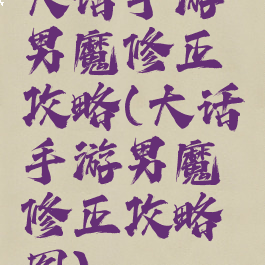 大话手游
男魔修正
攻略(大话
手游男魔
修正攻略
图)